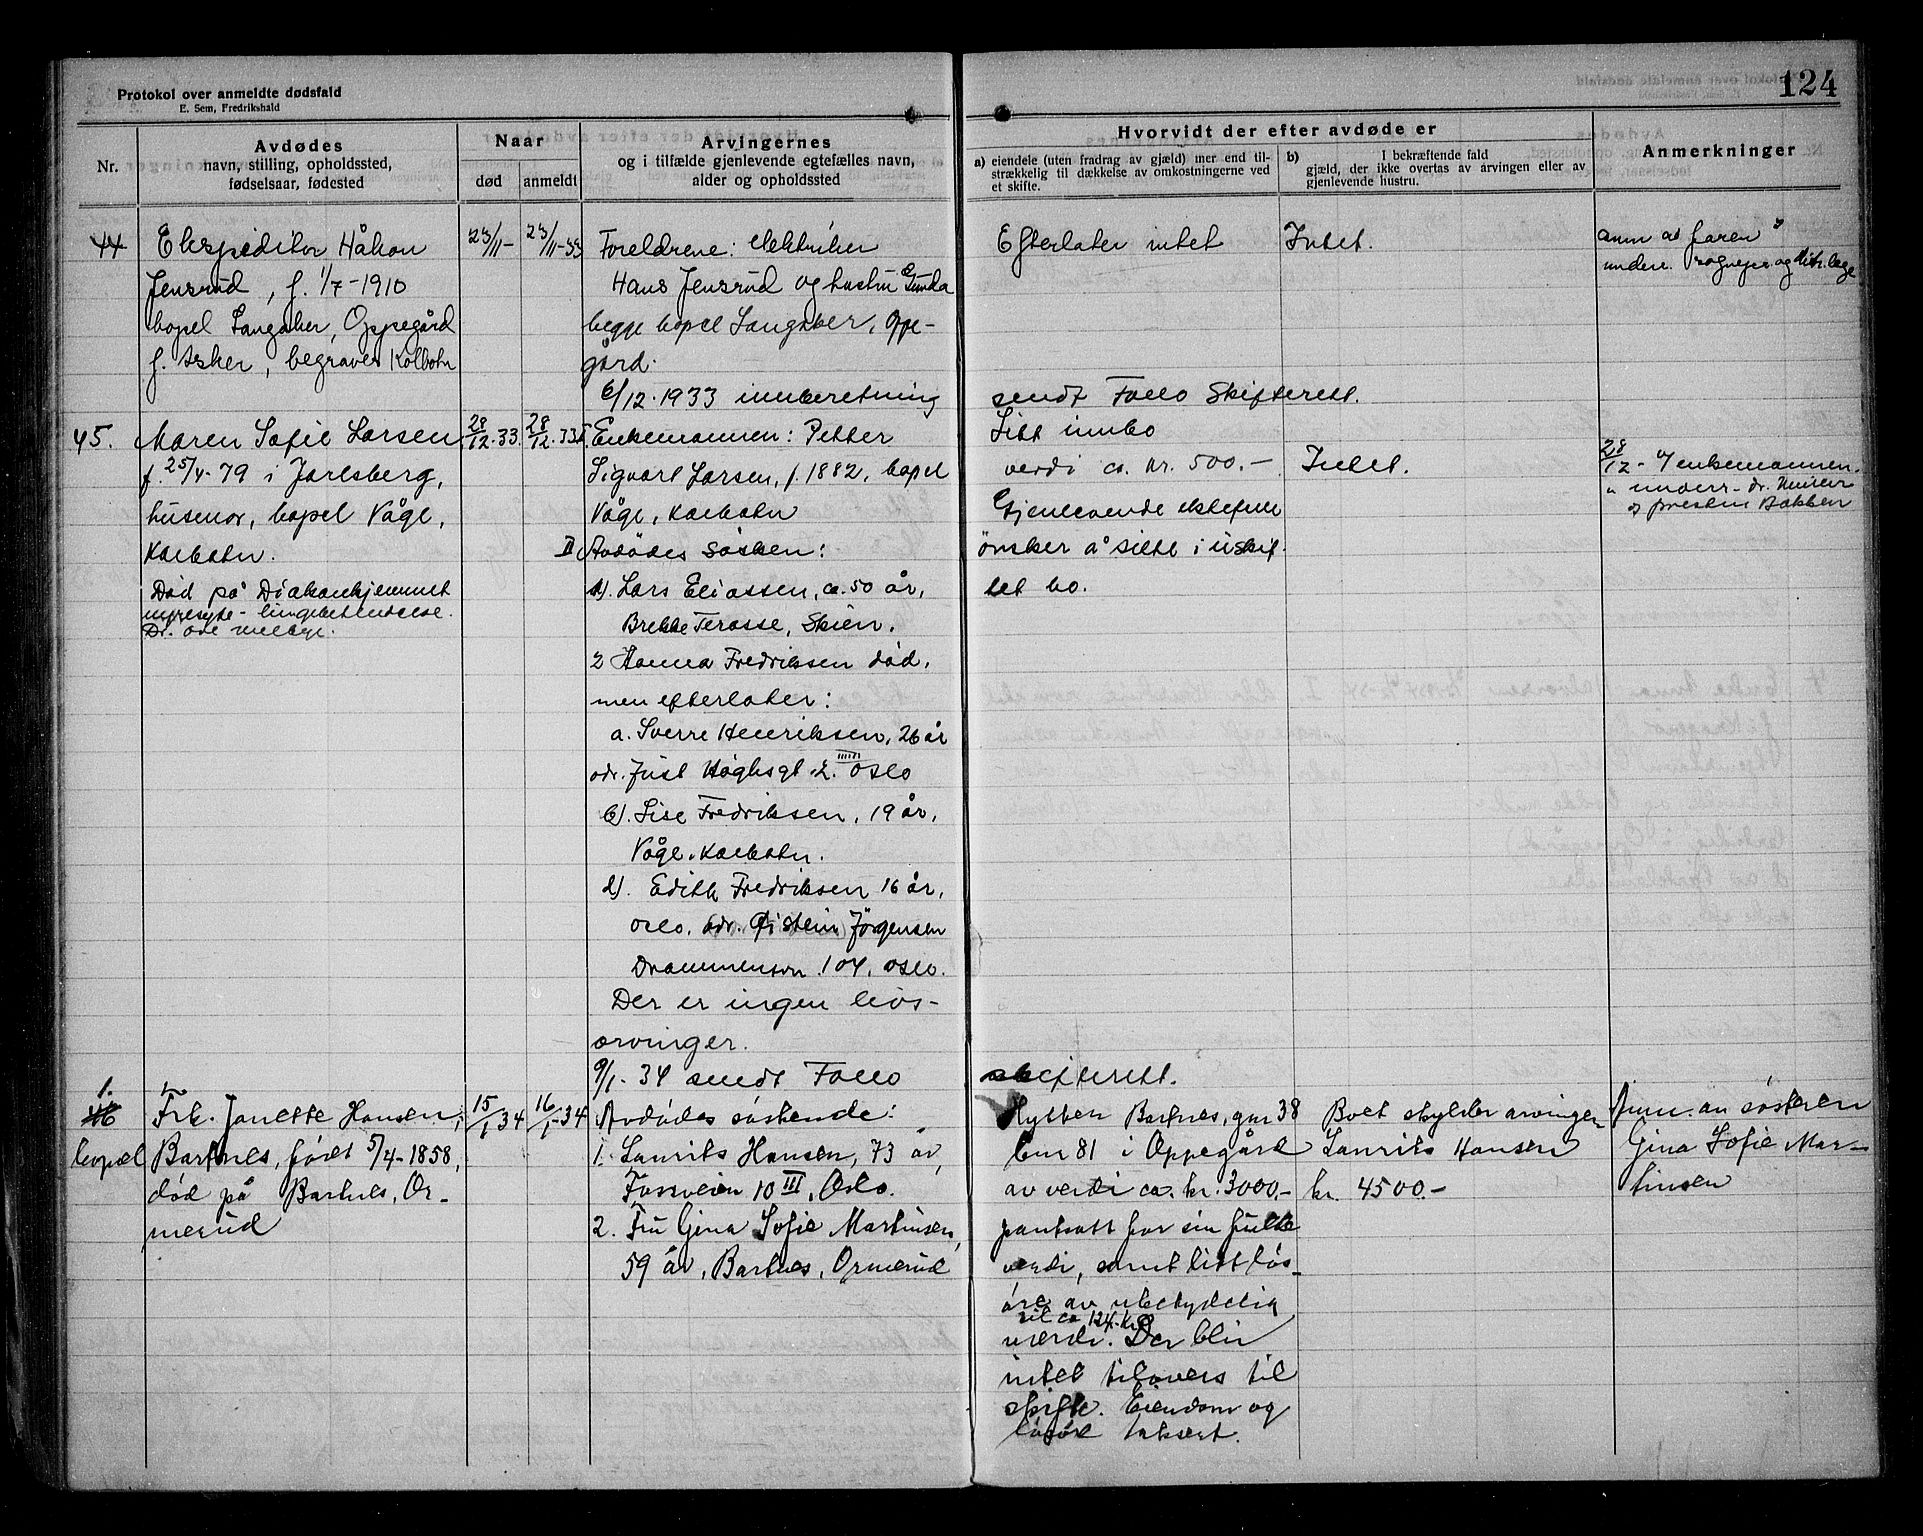 124
Protokol over anmeldte dødsfald
E. Sem, Fredrikshald
Nr.
Avdødes
navn, stilling, opholdssted,
fødselsaar, fødested
Naar
død
anmeldt
Arvingernes
og i tilfælde gjenlevende egtefælles navn,
alder og opholdssted
Hvorvidt der efter avdøde er
a) eiendele (uten fradrag av gjæld) mer end til-
strækkelig til dækkelse av omkostningerne ved
et skifte.
b) I bekræftende fald
gjæld, der ikke overtas av arvingen eller av
gjenlevende hustru.
Anmerkninger
44
Ekspeditør Håkon
Jensrud, f. 1/7-1910
bopel Langaker, Oppegård
f. Asker, begraves Kolbotn
23/11-
23/11-33
Foreldrene: elektriker
Hans Jensrud og hustru Gunda
begge bopel Langaker, Oppe-
gård.
6/12.1933 innberetning
Efterlater intet
Intet.
anm av faren
underr. sognepr. og distr.lege
sendt Follo Skifterett.
45.
Maren Sofie Larsen
f. 25/4-79 i Jarlsberg,
husmor, bopel Våge,
Kolbotn.
Død på Diakonhjemmet
nyresyke - lungebetendelse.
28/12.33.
28/12.33
I. Enkemannen: Petter
Sigvart Larsen, f. 1882, bopel
Våge, Kolbotn
II Avdødes søsken:
1). Lars Eliassen, ca. 50 år,
Brekke Terasse, Skien.
2 Hanna Fredriksen død,
men efterlater:
a. Sverre Henriksen, 26 år
adr. Just Høghsgt. 2. IIII Oslo
b). Lise Fredriksen, 19 år,
Våge, Kolbotn.
d). Edith Fredriksen 16 år,
Oslo, adr. Øistein Jørgensen
Drammensvn. 104, Oslo.
Der er ingen livs-
arvinger.
9/1.34 sendt Follo
Litt innbo
verdi ca. kr. 500.-
Gjenlevende ektefelle
ønsker å sitte i uskif-
tet bo.
Intet.
28/12- af enkemannen.
" underr. dr.
og presten Bakken
skifterett.
1.
46
bopel
Frk. Janette Hansen,
Bartnes, født 5/4-1858,
død på Bartnes, Or-
merud
15/1 34
16/1-34
Avdødes søskende:
1. Laurits Hansen, 73 år,
Fossveien 10 III, Oslo.
2. Fru Gina Sofie Martinsen,
59 år, Bartnes, Ormerud
Hytten Bartnes, gnr 38
bnr 81 i Oppegård
av verdi ca. kr. 3000.-
pantsatt for sin fulle
verdi, samt litt løs-
øre av ubetydelig
til ca 124.kr
verdi. Der blir
intet tilovers til
skifte. Eiendom og
løsøre taksert.
Boet skylder arvingen
Laurits Hansen
kr. 4500.-
Anm. av søsteren
Gina Sofie Mar-
tinsen